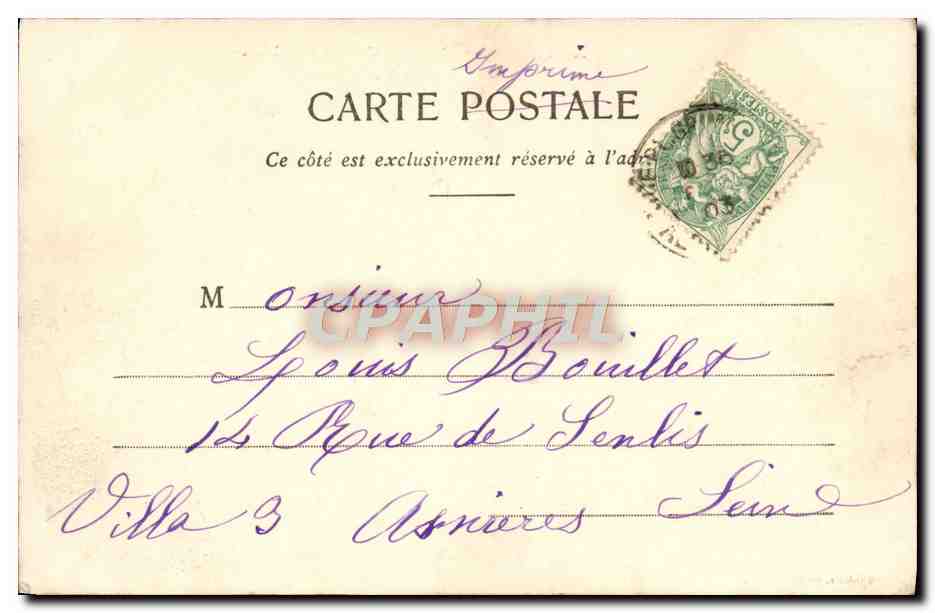 Imprimé
CARTE POSTALE
Ce côté est exclusivement réservé à l'adr
5
POSTES
03
Monsieur
CPAPHIL
Louis Bouillet
14 Rue de Senlis
Villa 3 Asnieres Seine